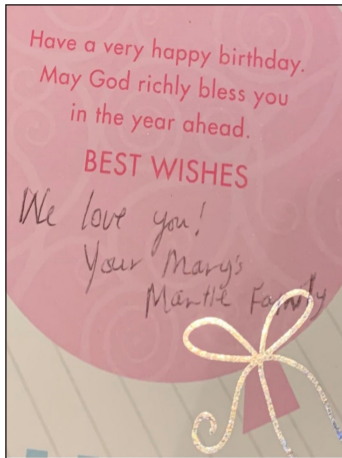 Have a very happy birthday.
May God richly bless you
in the year ahead.
BEST WISHES
We love you!
Your Mary's
Mantle Family